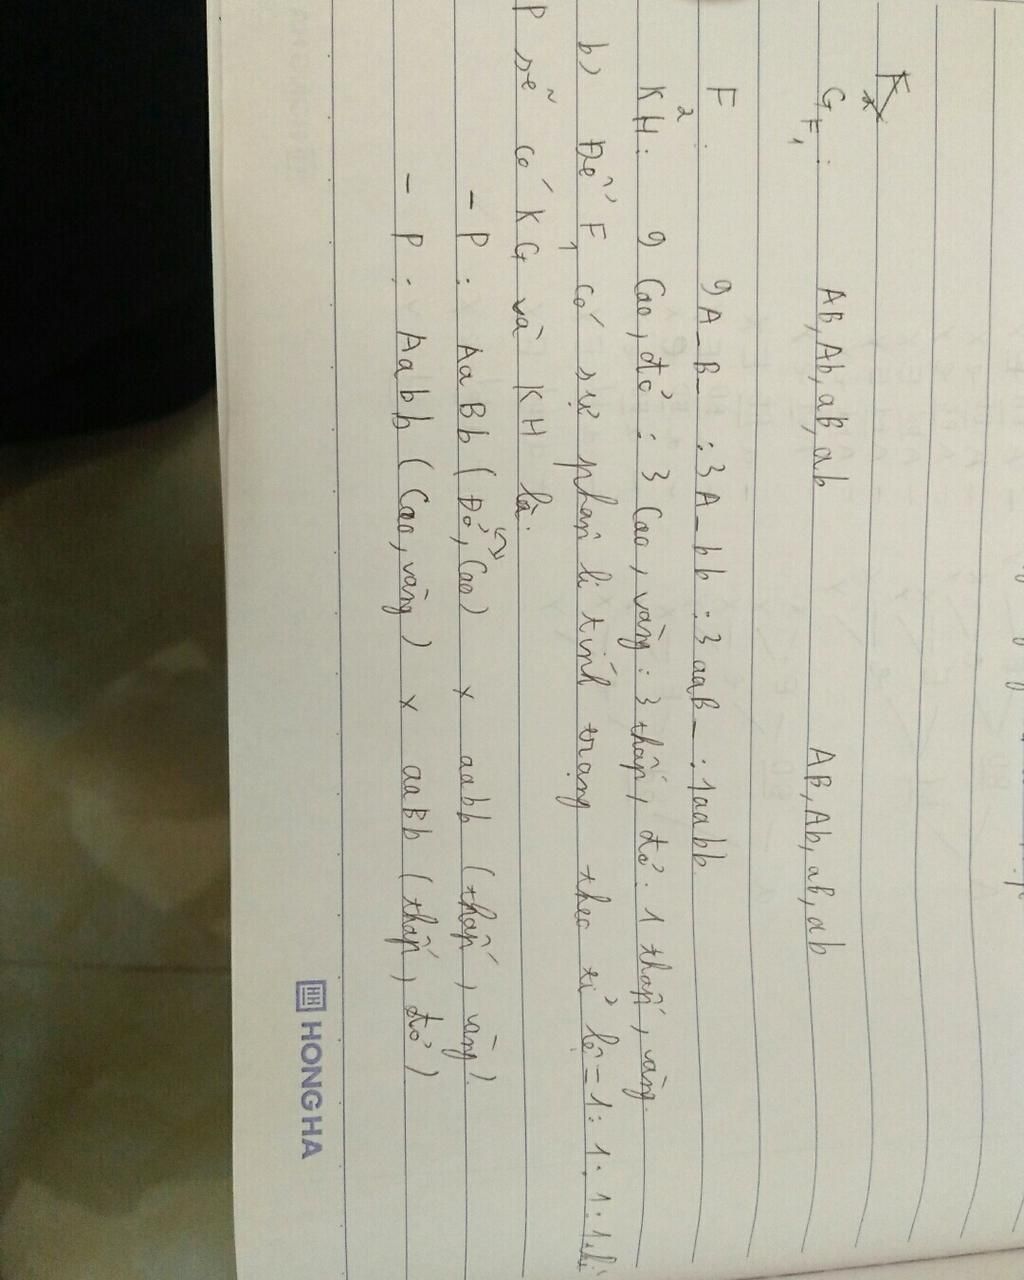 F2
GF1: AB, Ab, aB, ab AB, Ab, aB, ab
F2: 9A-B- : 3A-bb : 3aaB- : 1aabb.
KH: 9 Cao, đỏ : 3 Cao, vàng : 3 thấp, đỏ : 1 thấp, vàng.
b) Để F1 có sự phân li tính trạng theo tỉ lệ = 1 : 1 : 1 : 1 thì
P sẽ có KG và KH là:
- P : AaBb (Đỏ, Cao) x aabb (thấp, vàng).
- P : Aabb (Cao, vàng) x aaBb (thấp, đỏ)
HH HONG HA